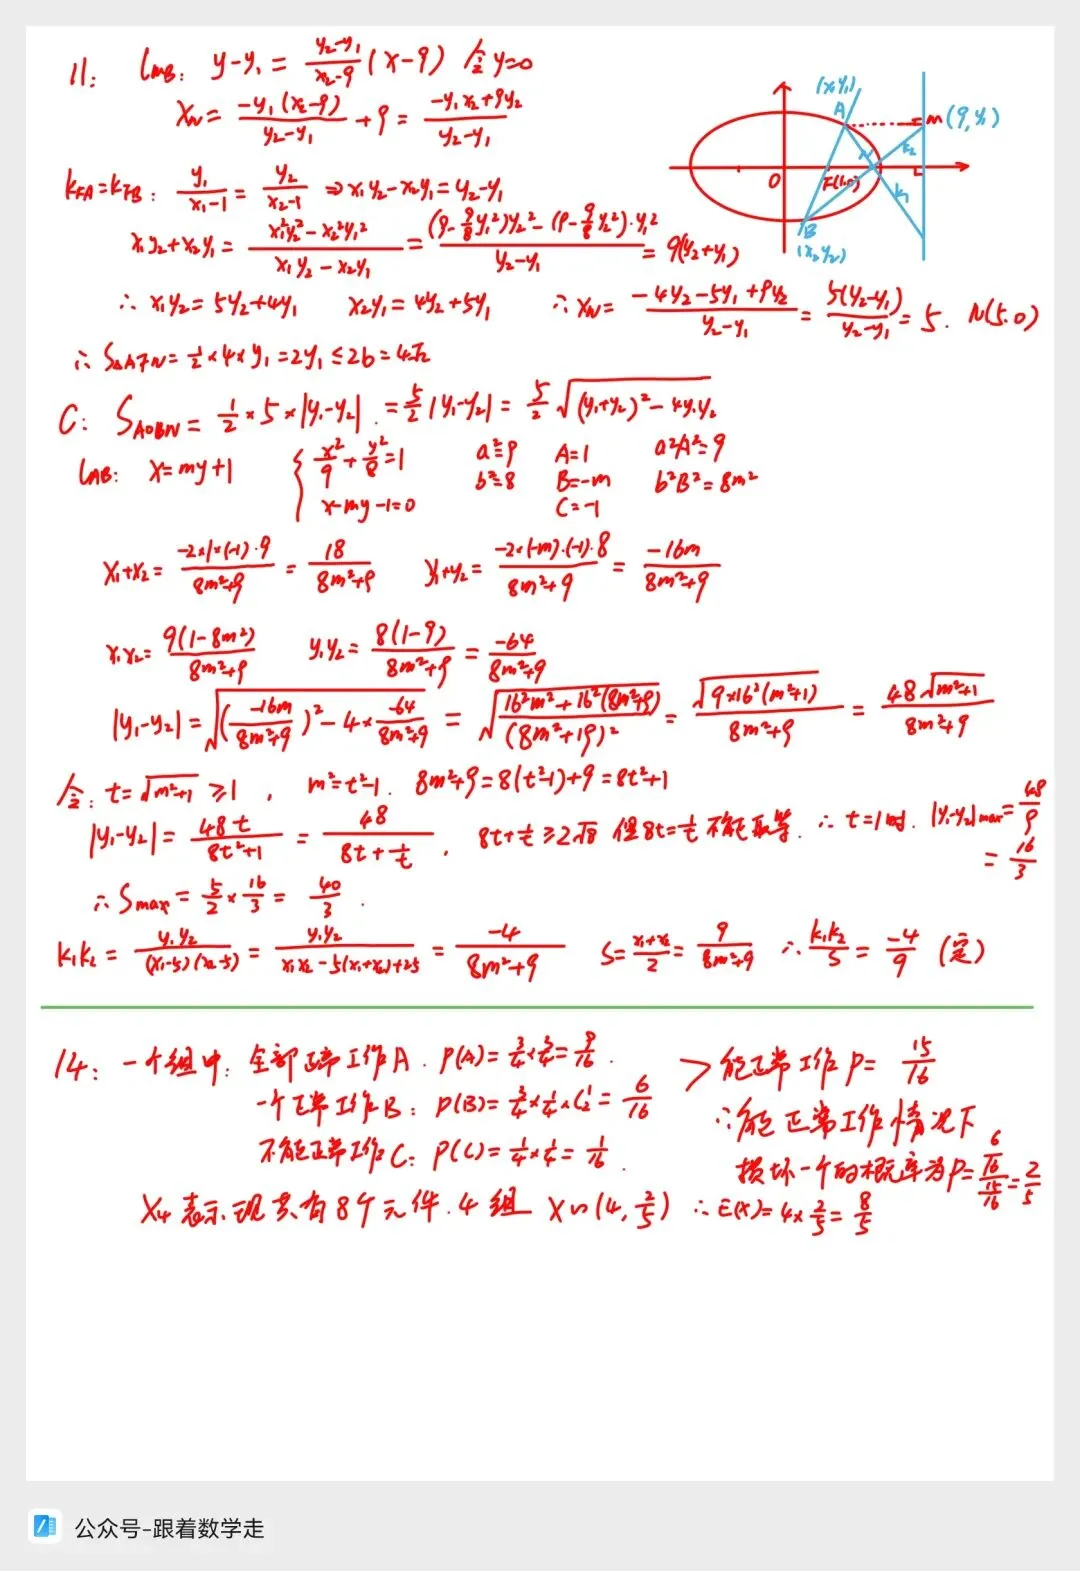 11: l_MB: y-y₁ = (y₂-y₁)/(x₂-9) (x-9) 令y=0
x_N = -y₁(x₂-9)/(y₂-y₁) + 9 = (-y₁x₂+9y₂)/(y₂-y₁)
k_FA=k_FB: y₁/(x₁-1) = y₂/(x₂-1) ⇒ x₁y₂-x₂y₁=y₂-y₁
x₁y₂+x₂y₁ = (x₁²y₂²-x₂²y₁²)/(x₁y₂-x₂y₁) = ((9-9/8y₁²)y₂²-(9-9/8y₂²)·y₁²)/(y₂-y₁) = 9(y₂+y₁)
∴ x₁y₂=5y₂+4y₁ x₂y₁=4y₂+5y₁ ∴ x_N = (-4y₂-5y₁+9y₂)/(y₂-y₁) = 5(y₂-y₁)/(y₂-y₁) = 5. N(5.0)
(x₁y₁)
A
M(9,y₁)
N
k₂
O
F(1,0)
k₁
B
(x₂y₂)
∴ S△AFN = 1/2×4×y₁ = 2y₁ ≤ 2b = 4√2
C: S_AOBN = 1/2×5×|y₁-y₂|. = 5/2|y₁-y₂| = 5/2√((y₁+y₂)²-4y₁y₂)
l_AB: x=my+1 { x²/9+y²/8=1 a²=9 A=1 a²A²=9
x-my-1=0 b²=8 B=-m b²B²=8m²
C=-1
x₁+x₂ = -2×1×(-1)·9/(8m²+9) = 18/(8m²+9) y₁+y₂ = -2×(-m)·(-1)·8/(8m²+9) = -16m/(8m²+9)
x₁x₂ = 9(1-8m²)/(8m²+9) y₁y₂ = 8(1-9)/(8m²+9) = -64/(8m²+9)
|y₁-y₂| = √((-16m/(8m²+9))²-4×-64/(8m²+9)) = √((16²m²+16²(8m²+9))/(8m²+19)²) = √(9×16²(m²+1))/(8m²+9) = 48√(m²+1)/(8m²+9)
令: t=√(m²+1) ≥1, m²=t²-1. 8m²+9=8(t²-1)+9=8t²+1
|y₁-y₂| = 48t/(8t²+1) = 48/(8t+1/t), 8t+1/t≥2√8 但8t=1/t不能取等. ∴ t=1时. |y₁-y₂|max=48/9
= 16/3
∴ Smax = 5/2×16/3 = 40/3.
k₁k₂ = y₁y₂/((x₁-5)(x₂-5)) = y₁y₂/(x₁x₂-5(x₁+x₂)+25) = -4/(8m²+9) S=(x₁+x₂)/2=9/(8m²+9) ∴ k₁k₂/S = -4/9 (定)
14: 一个组中: 全部正常工作A. P(A)=3/4×3/4=9/16. > 能正常工作P=15/16
一个正常工作B: P(B)=3/4×1/4×C₂¹=6/16 ∴能正常工作情况下
不能正常工作C: P(C)=1/4×1/4=1/16. 损坏一个的概率为P=(6/16)/(15/16)=2/5
X₄表示现共有8个元件.4组 X∽(4,2/5) ∴E(X)=4×2/5=8/5
公众号-跟着数学走